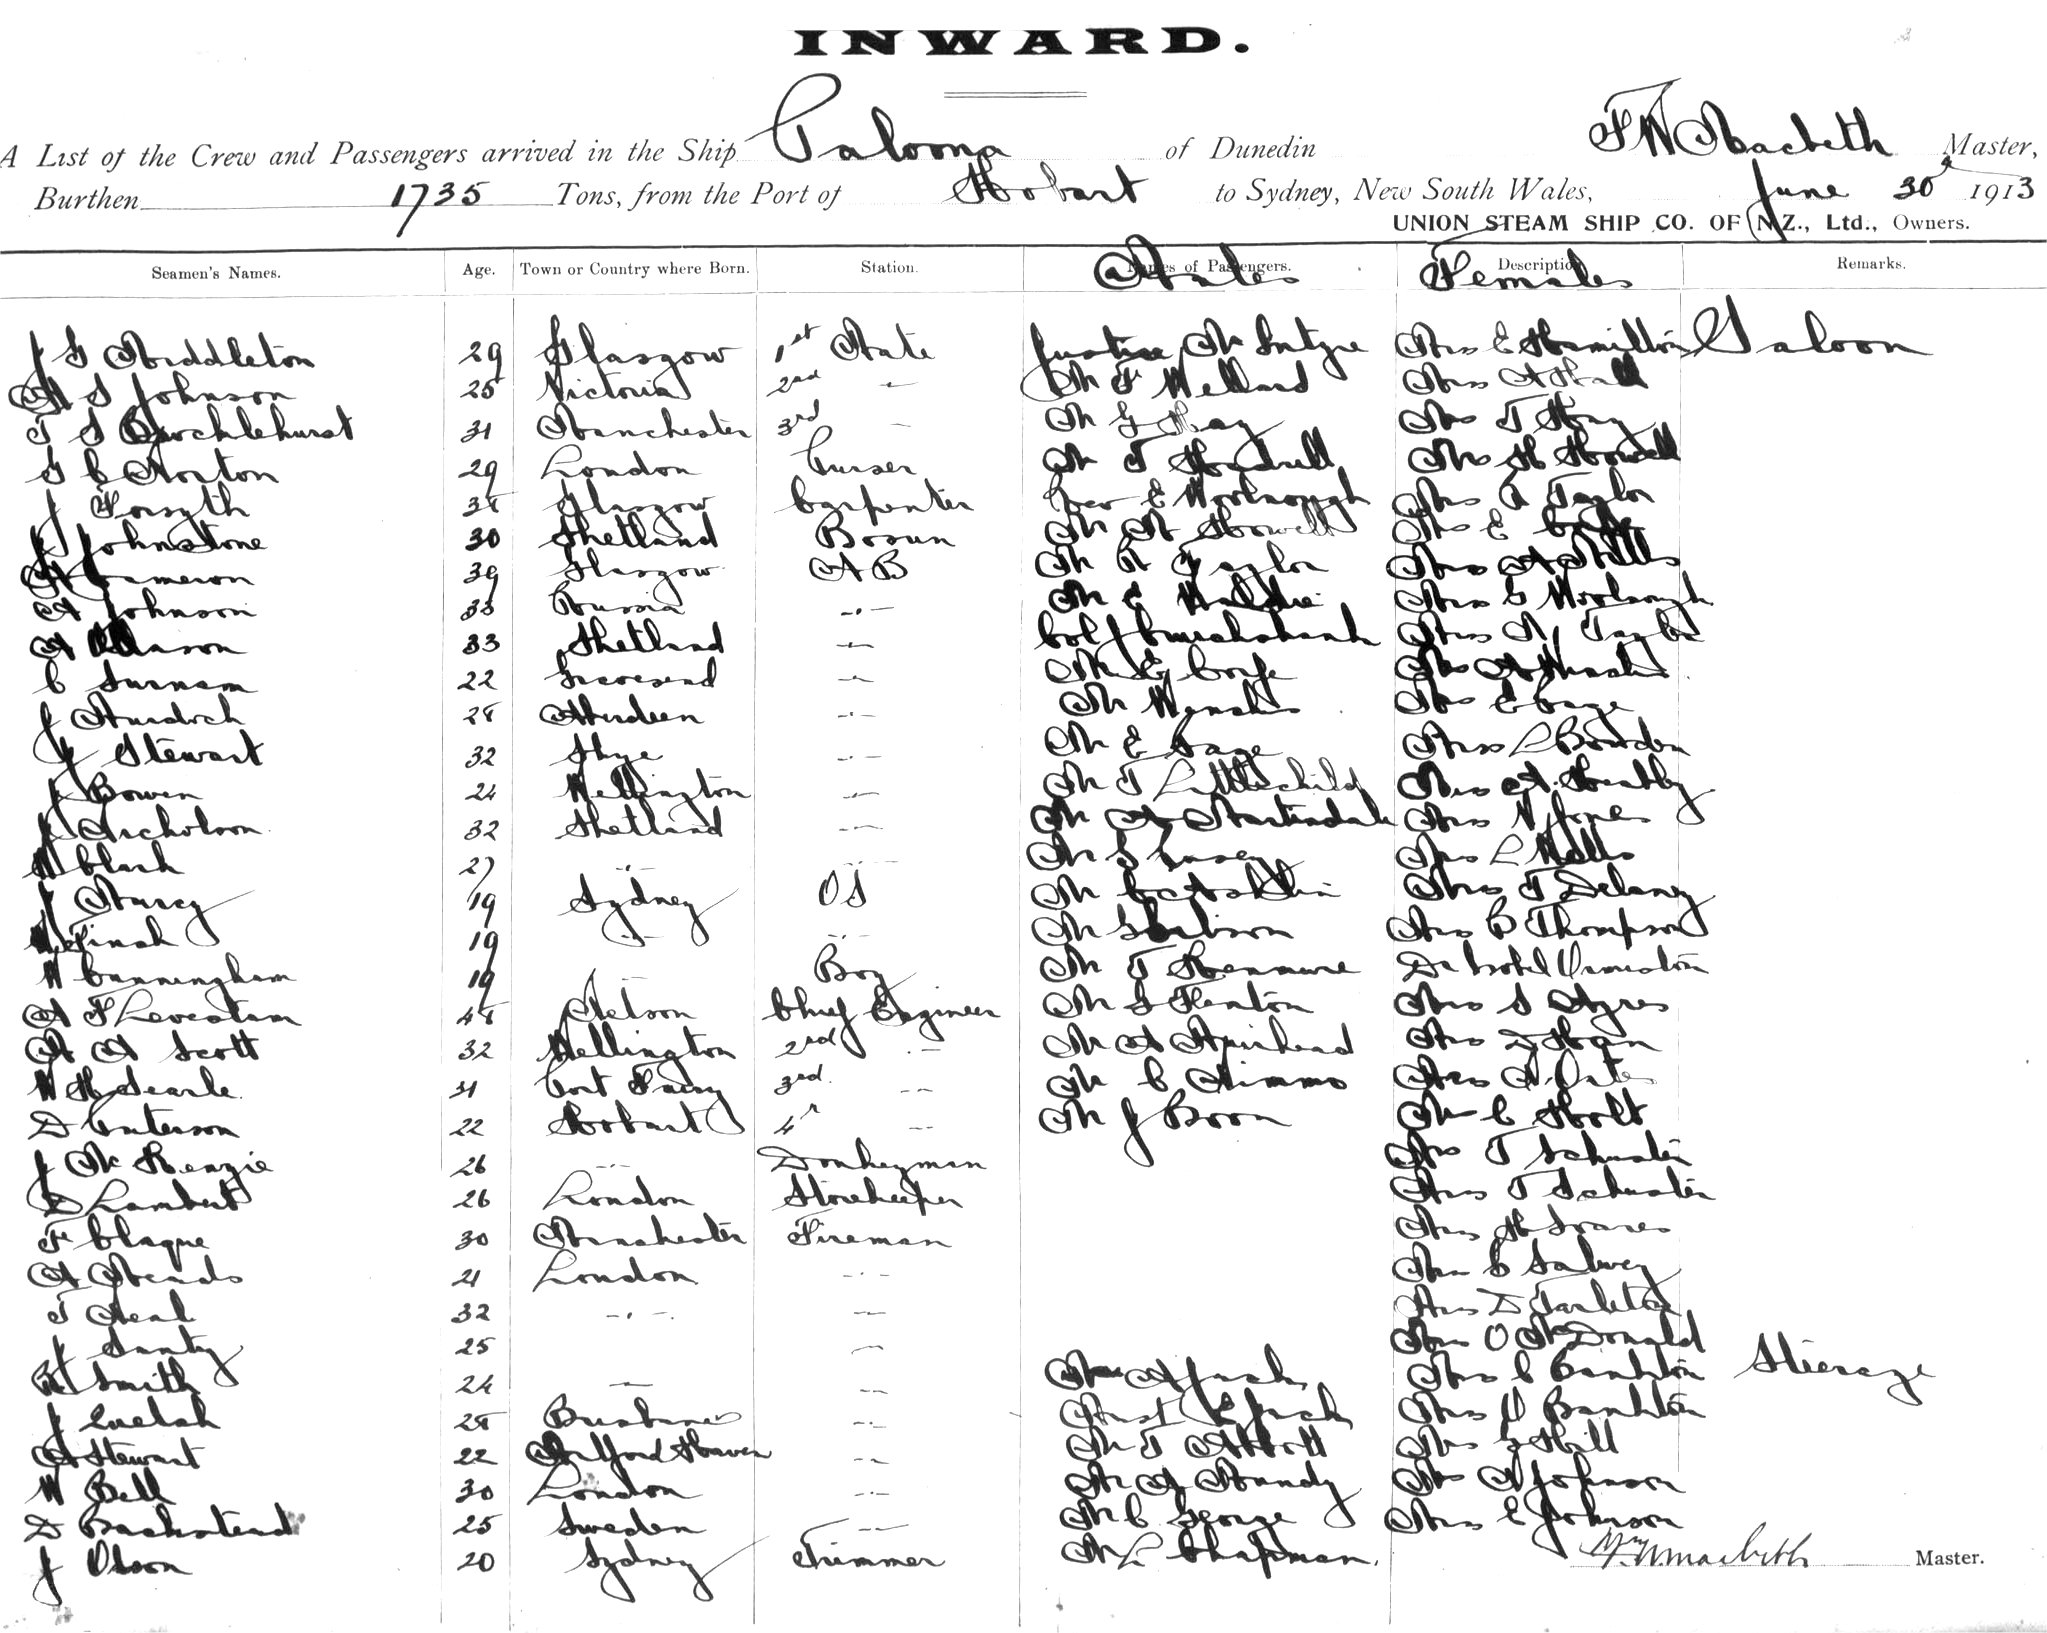 INWARD.
A List of the Crew and Passengers arrived in the Ship Paloona of Dunedin F W Macbeth Master,
Burthen 1735 Tons, from the Port of Hobart to Sydney, New South Wales, June 30th 1913
UNION STEAM SHIP CO. OF N.Z., Ltd., Owners.
Seamen's Names. Age. Town or Country where Born. Station. Names of Passengers. Males Description Females Remarks.
J G Middleton 29 Glasgow 1st Mate Justice McIntyre Mrs E Hamilton Saloon
A S Johnson 25 Victoria 2nd -"- Mr F Wellard Mrs A Hall
T S Brocklehurst 31 Manchester 3rd - Mr G Hay Mrs T Hay
G C Norton 29 London Purser Mr T Mrs H Howell
J Forsyth 38 Glasgow Carpenter Rev E Woolnough Mrs A Taylor
J Johnstone 30 Shetland Bosun Mr H Howell Mrs E
A Cameron 39 Glasgow A B Mr R Taylor Mrs A Mills
A Johnson 33 Russia -"- Mr E Mrs G Woolnough
A Mason 33 Shetland -"- Col J Cruickshank Mrs A Taylor
C Surnam 22 Gravesend -"- Mr E Mrs A
J Murdoch 28 Aberdeen -"- Mr Mrs E Gage
J Stewart 32 Skye -"- Mr E Gage Mrs L Bowden
J Bowen 24 Wellington -"- Mr T Littlechild Mrs A.
J Nicholson 32 Shetland -"- Mr A Martindale Mrs N Jones
W Clark 27 -"- -"- Mr S Mrs L Wells
J 19 Sydney O S Mr Mrs T Delaney
W Finch 19 -"- -"- Mr Mrs C Thompson
W Cunningham 19 Boy Mr T Mrs Isobel Ormiston
A F Levestam 48 Nelson Chief Engineer Mr S Fenton Mrs S Ayres
A A Scott 32 Wellington 2nd -"- Mr A Muirhead Mrs D Hogan
W H Searle 31 Port Fairy 3rd -- Mr C Nimmo Mrs A. Oates
D Paterson 22 Hobart 4th -- Mr J Boon Mrs C Holt
J McKenzie 26 -"- Donkeyman Mrs T Schuster
D Lambert 26 London Storekeeper Mrs T Schuster
F Clague 30 Manchester Fireman Mrs H Soares
A Meads 21 London -"- Mrs C Salvey
T Neal 32 -"- -"- Mrs D Tarleton
J 25 -"- Mrs O McDonald
R Smith 24 -"- -"- Mrs A Jack Mrs C Bankton Steerage
J 28 Brisbane -"- Mast E Jack Mrs Bankton
A Stewart 22 Milford Haven -"- Mr T Abbott Mrs G Hill
W Bell 30 London -"- Mr A Mundy Mrs A Johnson
D 25 Sweden -"- Mr C George Mrs E Johnson
J Olson 20 Sydney Trimmer Mr L Chapman. Macbeth Master.